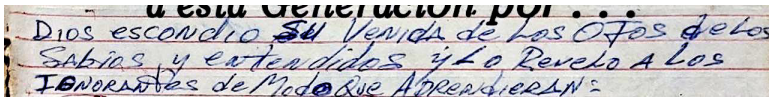 a esta Generación por . . .
Dios escondio su Venida de Los OJos de Los
SAbios, y entendidos y Lo Revelo A Los
IGNORANTes de Modo Que APRENdieRAN=